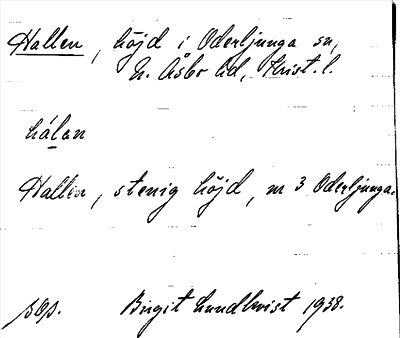 Hallen, höjd i Oderljunga sn,
N. Åsbo hd, Krist. l.
hálan
Hallen, stenig höjd, nr 3 Oderljunga.
pOp. Birgit Lundkvist 1938.